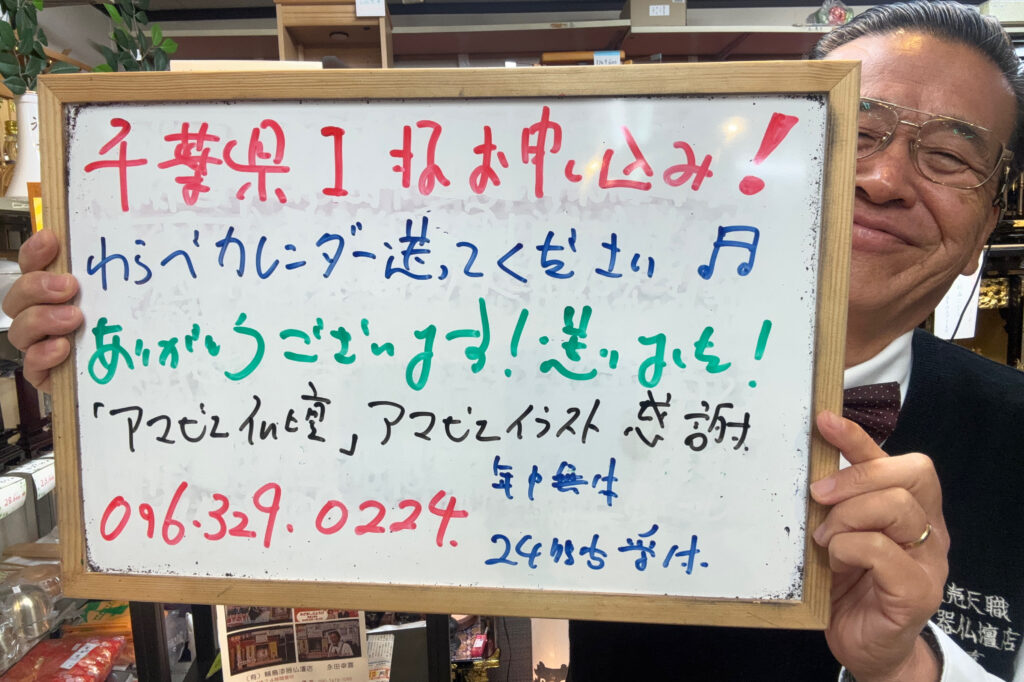 千葉県I様お申し込み!
わらべカレンダー送ってください♬
ありがとうございます!送りました!
「アマビエ仏壇」アマビエイラスト 感謝
096.329.0224.
年中無休
24時間受付.
売天職
器仏壇店
(有)輪島漆器仏壇店 永田幸喜